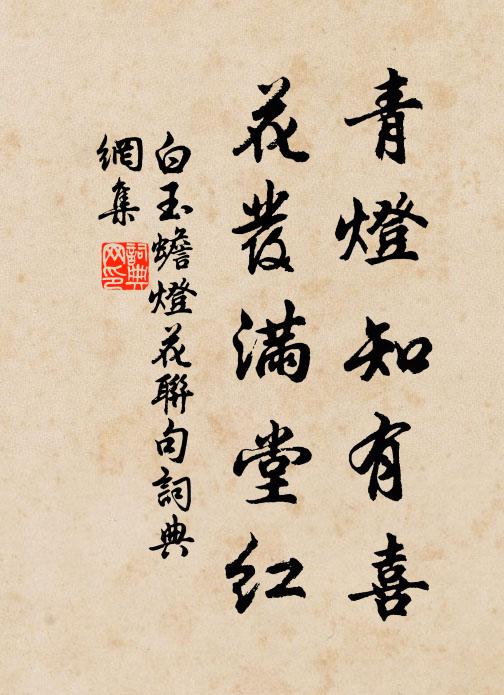 青燈知有喜
花發滿堂紅
白玉蟾燈花聯句詞典
網集
詞典
网印